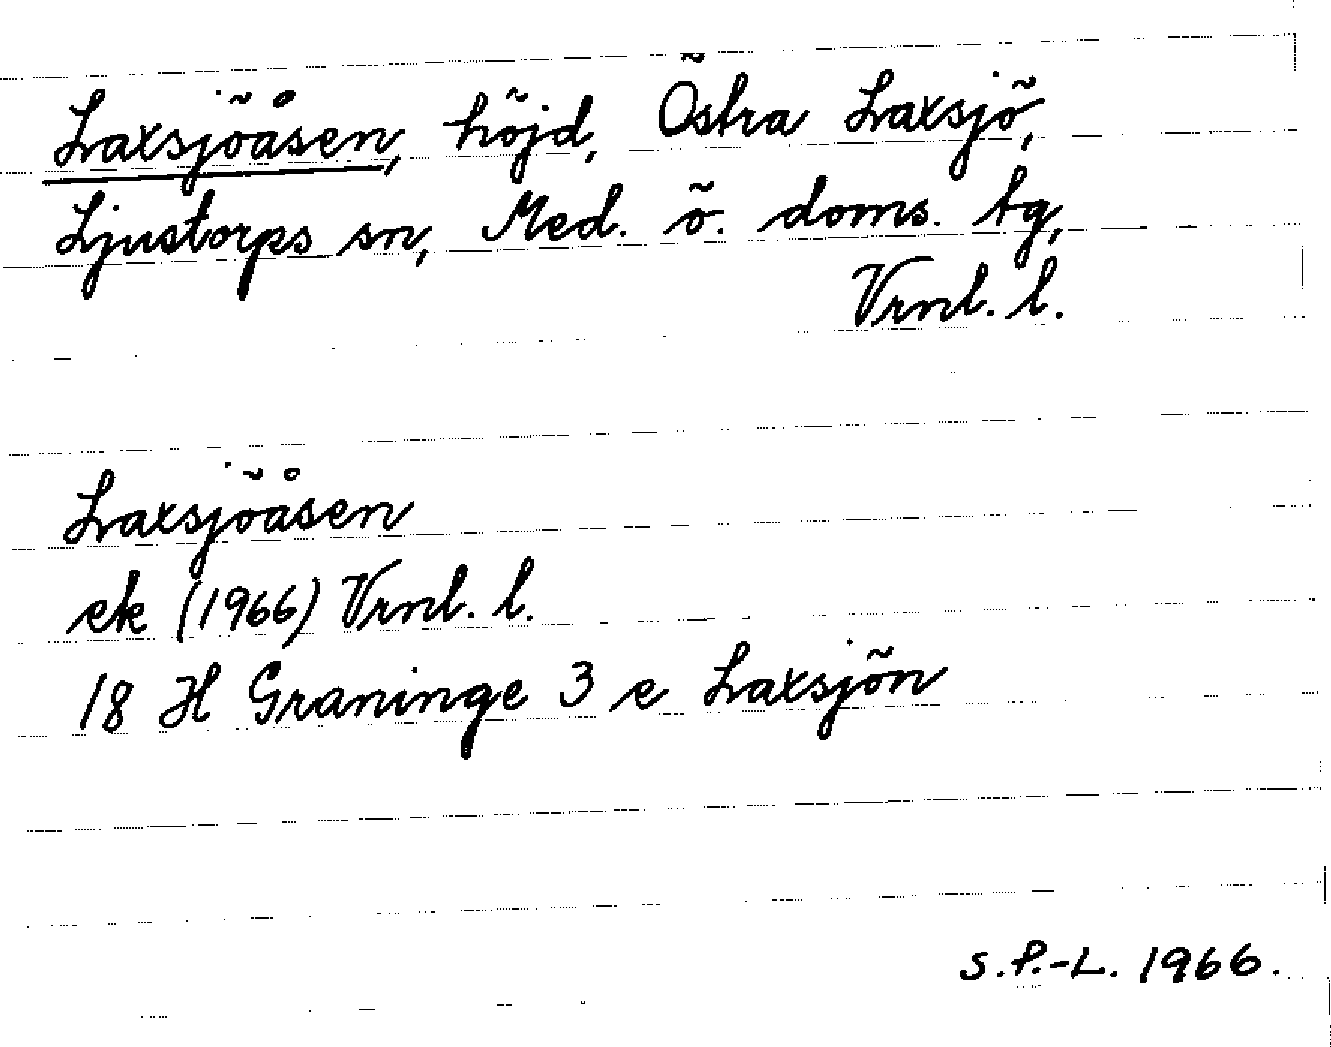 Laxsjöåsen, höjd, Östra Laxsjö,
Ljustorps sn, Med. ö. doms. tg,
Vrnl. l.
Laxsjöåsen
ek (1966) Vrnl. l.
18 H Graninge 3 e Laxsjön
S.P.-L. 1966.